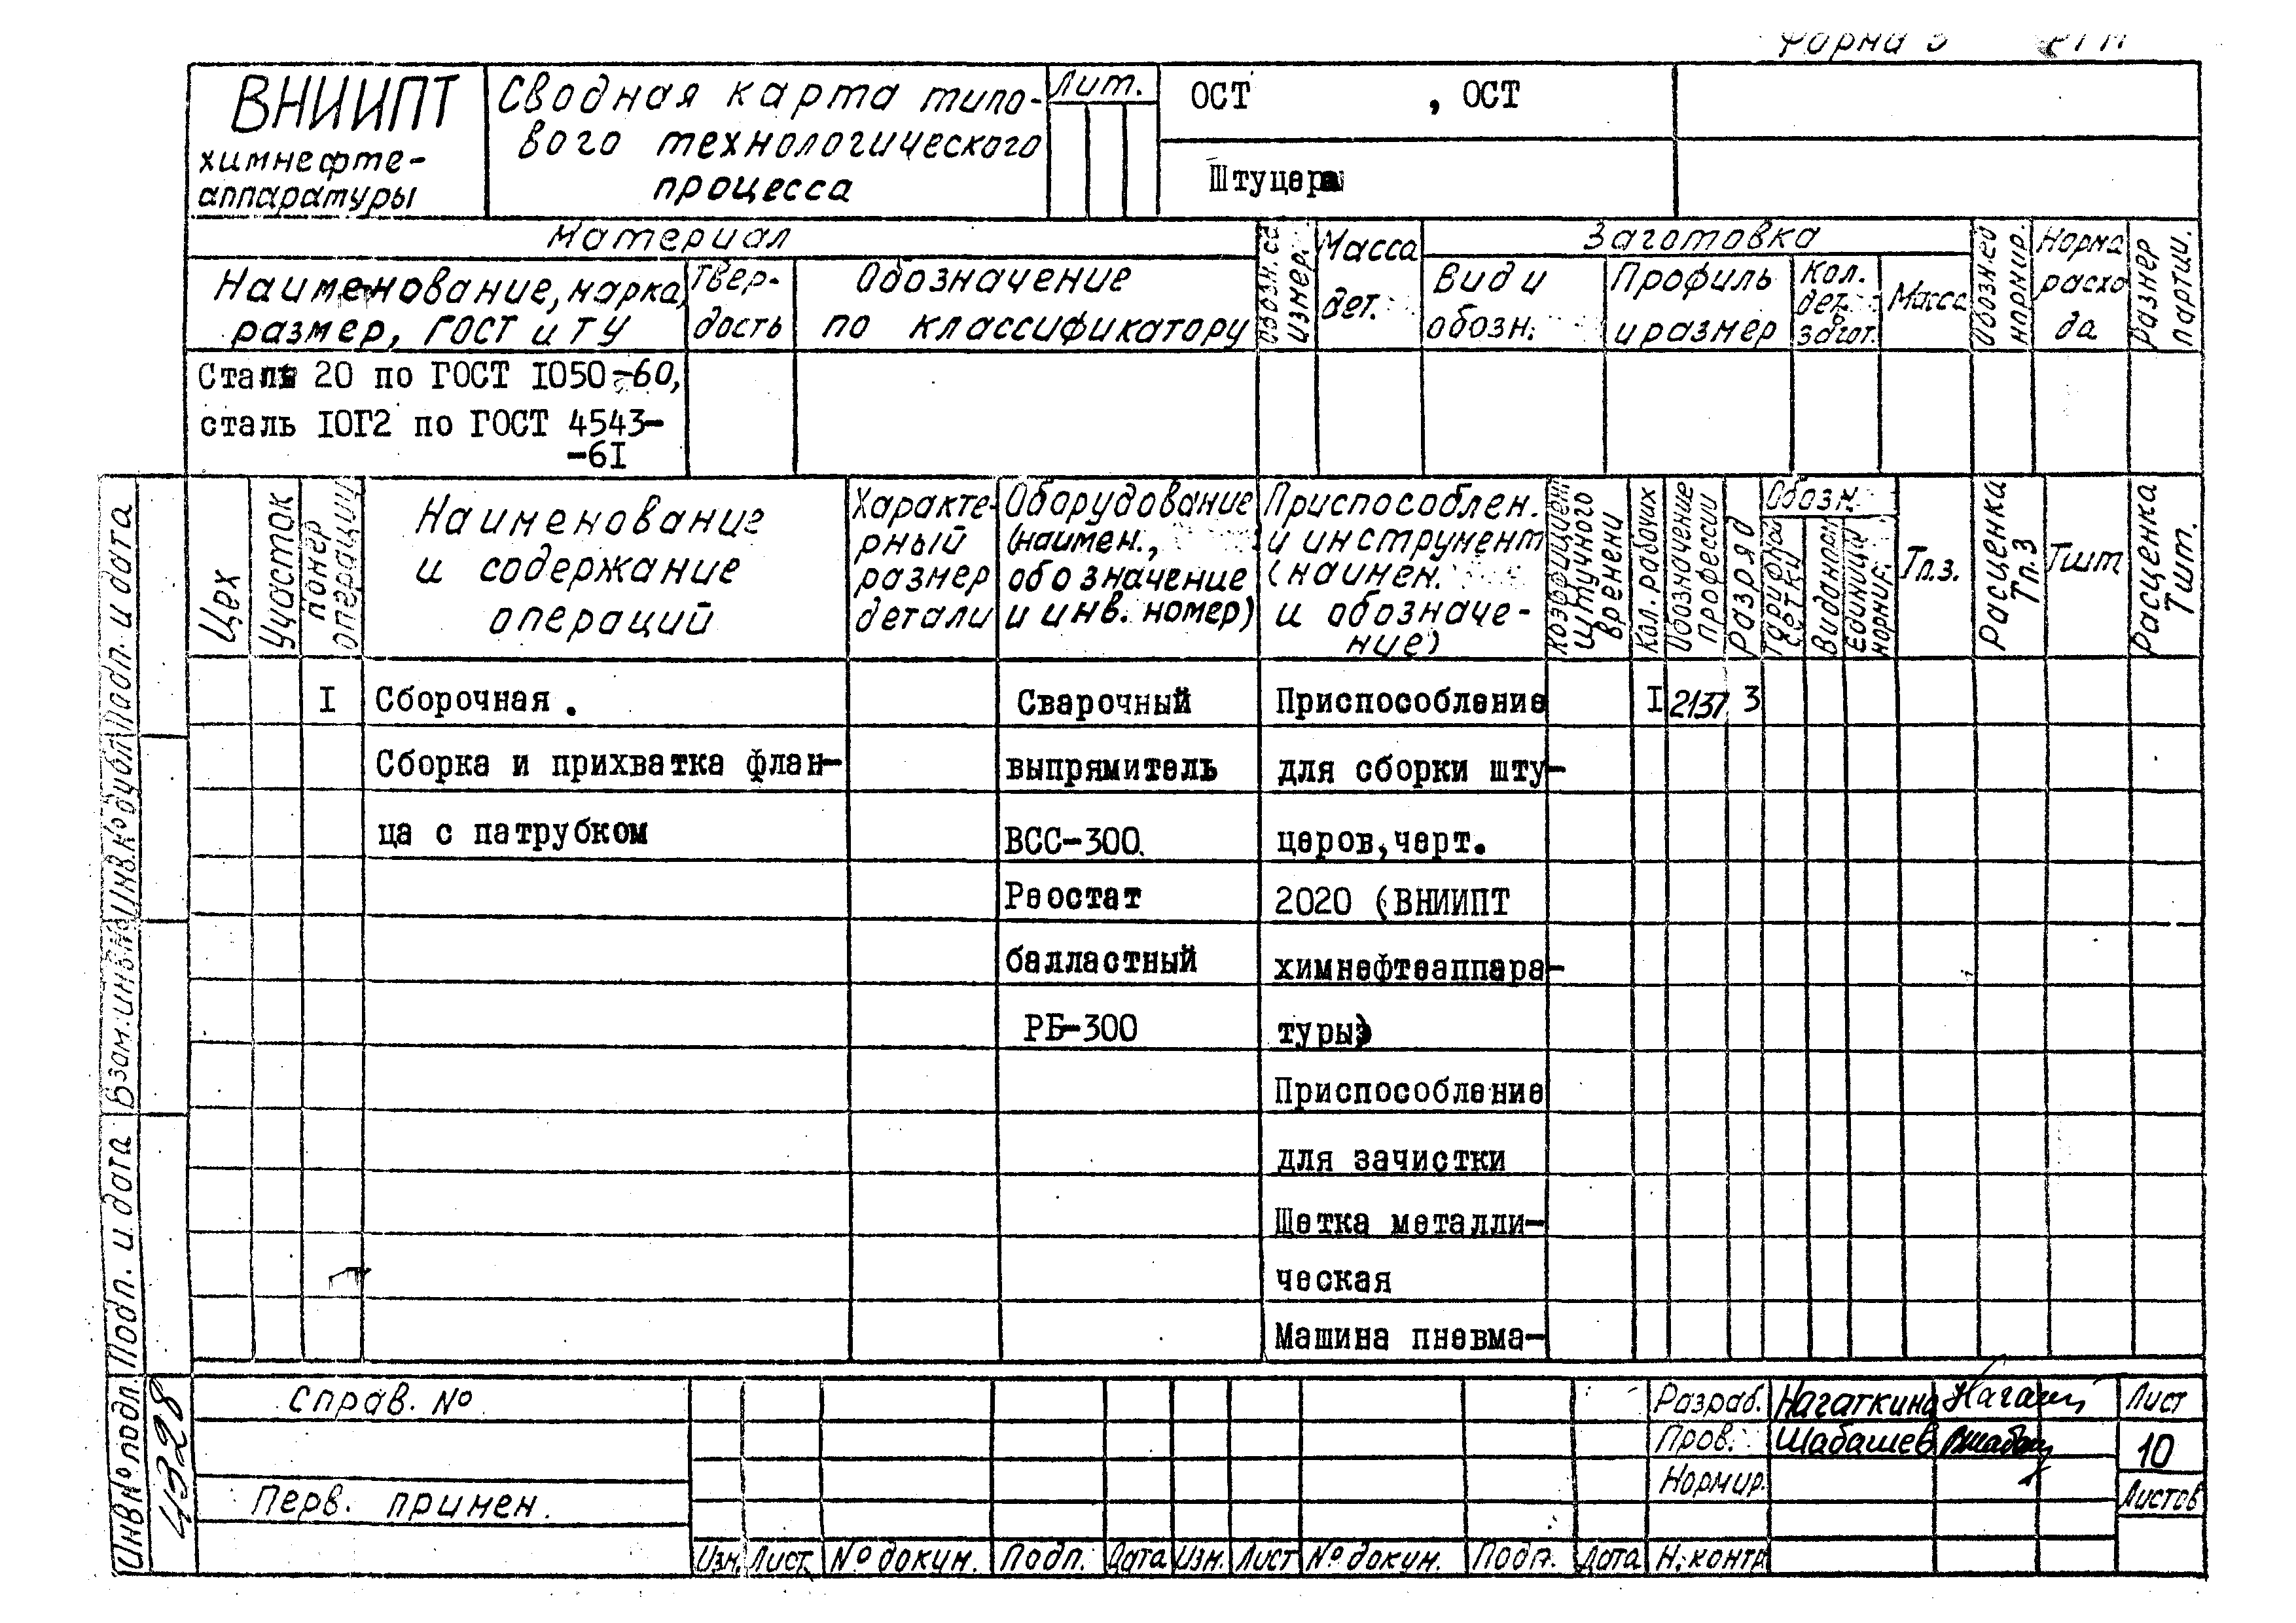 Форма 3
ВНИИПТ
химнефте-
аппаратуры
Сводная карта типо-
вого технологического
процесса
Лит.
ОСТ , ОСТ
Штуцера
Материал
Наименование, марка,
размер, ГОСТ и ТУ
Твер-
дость
Обозначение
по классификатору
Обозн. ед.
измер.
Масса
дет.
Заготовка
Вид и
обозн.
Профиль
и размер
Кол.
дет. в
загот.
Масса
Обозн. ед
нормир.
Норма
расхо
да
Размер
партии.
Сталь 20 по ГОСТ I050-60,
сталь I0Г2 по ГОСТ 4543-
-6I
Цех
Участок
Номер
операции
Наименование
и содержание
операций
Характе-
рный
размер
детали
Оборудование
(наимен.,
обозначение
и инв. номер)
Приспособлен.
и инструмент
(наимен.
и обозначе-
ние)
Коэффициент
штучного
времени
Кол. рабочих
Обозначение
профессии
Разряд
Обозн.
Тарифной
сетки
Вида норм
Единицы
нормир.
Тп.з.
Расценка
Тп.з
Тшт
Расценка
Тшт.
I Сборочная. Сварочный Приспособление I 2137 3
Сборка и прихватка флан- выпрямитель для сборки шту-
ца с патрубком ВСС-300. церов,черт.
Реостат 2020 (ВНИИПТ
балластный химнефтеаппара-
РБ-300 туры)
Приспособление
для зачистки
Щетка металли-
ческая
Машина пневма-
Подп. и дата
Инв.№ дубл.
Взам. инв.№
Подп. и дата
Инв№ подл.
4328
Справ. №
Перв. примен.
Изм. Лист № докум. Подп. Дата Изм. Лист № докум. Подп. Дата
Разраб. Нагаткина
Пров. Шабашев
Нормир.
Н. контр
Лист
10
Листов